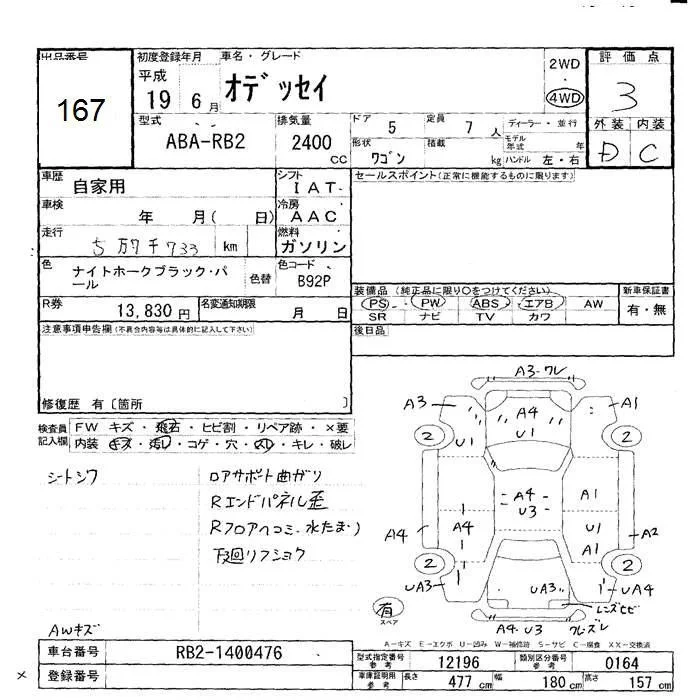 出品番号
167
初度登録年月
平成
19 6月
車名・グレード
オデッセイ
2WD
・
4WD
評価点
3
外装 内装
D C
型式
ABA-RB2
排気量
2400
CC
ドア 5
定員 7人
ディーラー・並行
形状
ワゴン
積載 kg
モデル年式 年
ハンドル 左・右
車歴
自家用
シフト
IAT
セールスポイント(正常に機能するものに限ります)
車検
年 月( 日)
冷房
AAC
走行
5万7千733 km
燃料
ガソリン
色
ナイトホークブラック・パール
色替
色コード
B92P
装備品(純正品に限り○をつけてください)
PS・PW・ABS・エアB・AW
SR ナビ TV カワ
新車保証書
有・無
R券
13,830円
名変通知期限
月 日
後日品
注意事項申告欄(不具合内容等は具体的に記入して下さい)
修復歴 有〔箇所 〕
検査員記入欄
FW キズ・飛石・ヒビ割・リペア跡・×要
内装・キズ・汚レ・コゲ・穴・スレ・キレ・破レ
シートシワ
ロアサポート曲ガリ
Rエンドパネル歪
Rフロアヘコミ・水たまり
下廻リフショク
AWキズ
A3-ワレ
A3
A1
A4
U1
U1
2
2
A4
U3
A1
A4
A4
U1
A1
A2
2
2
UA3
UA3
UA4
レンズヒビ
有
スペア
A4・U3
A-キズ E-エクボ U-凹み W-補修跡 S-サビ C-腐食 XX-交換済
車台番号
RB2-1400476
登録番号
×
型式指定番号
参考
12196
類別区分番号
参考
0164
車庫証明用
参考
長さ 477cm
幅 180cm
高さ 157cm